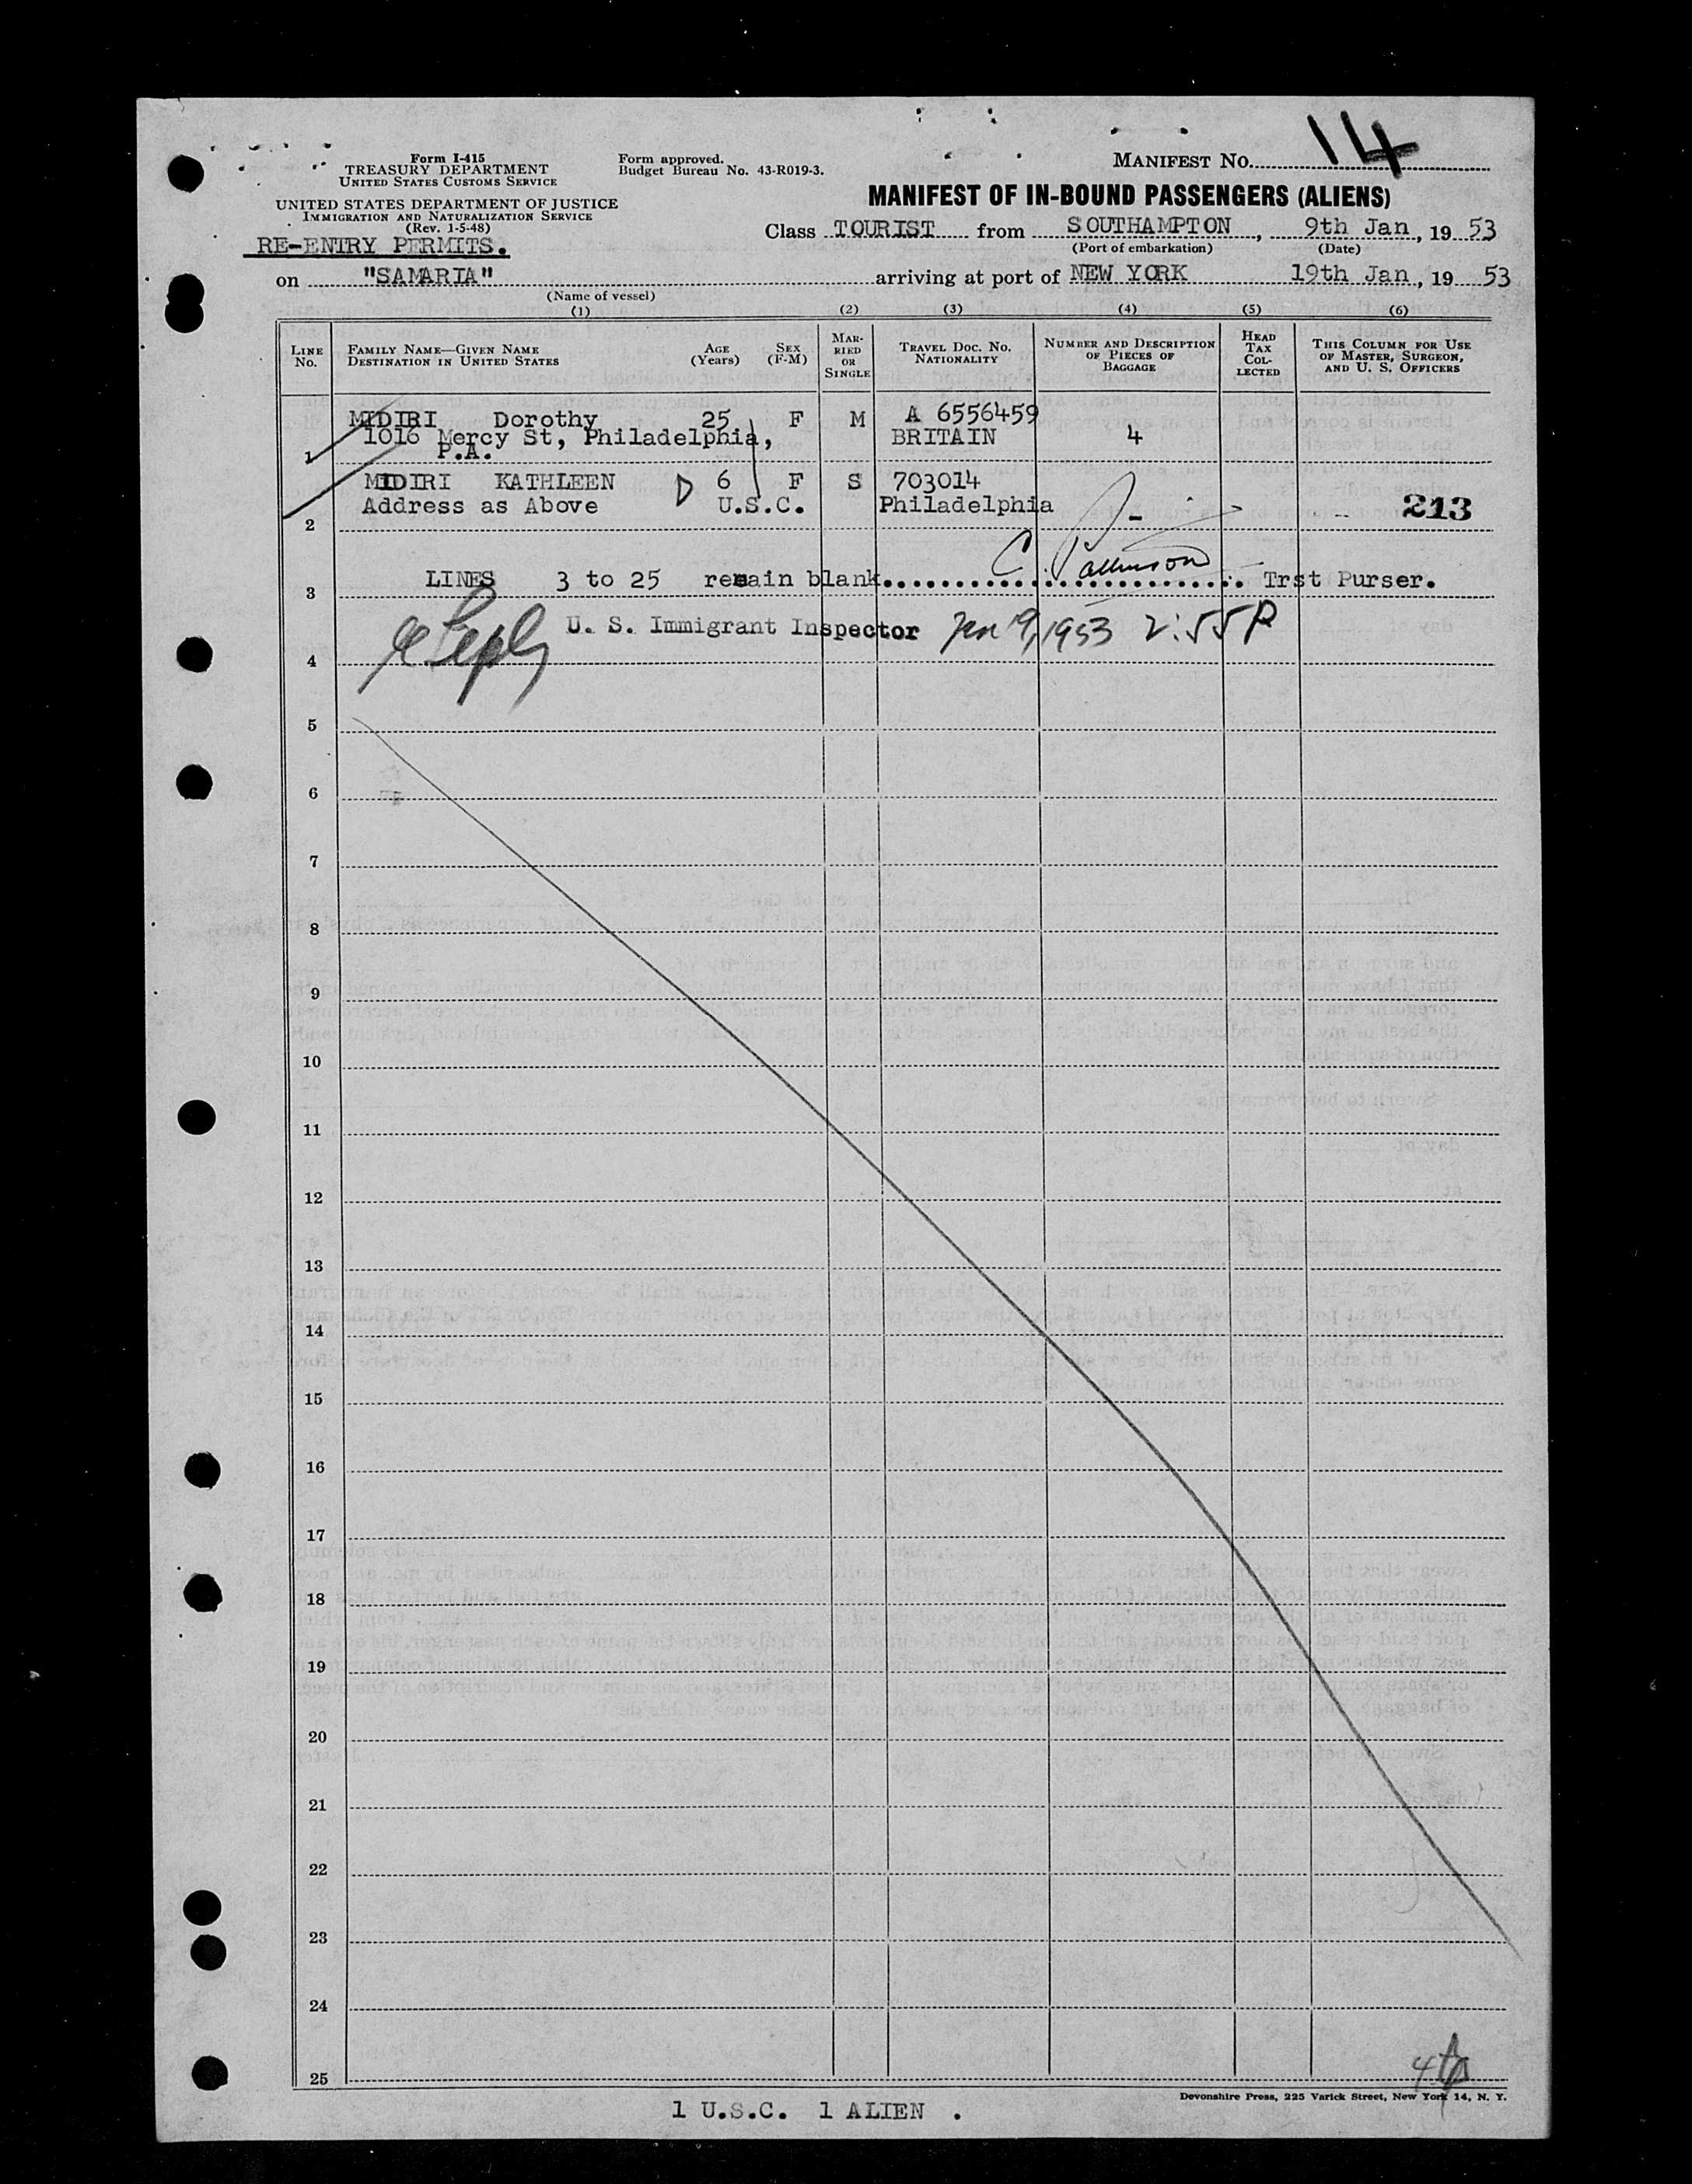 MANIFEST NO. 14
Form I-415
TREASURY DEPARTMENT
UNITED STATES CUSTOMS SERVICE
Form approved.
Budget Bureau No. 43-R019-3.
UNITED STATES DEPARTMENT OF JUSTICE
IMMIGRATION AND NATURALIZATION SERVICE
(Rev. 1-5-48)
MANIFEST OF IN-BOUND PASSENGERS (ALIENS)
RE-ENTRY PERMITS.
Class TOURIST from SOUTHAMPTON, 9th Jan, 19 53
(Port of embarkation) (Date)
on "SAMARIA" arriving at port of NEW YORK 19th Jan, 19 53
(Name of vessel)
(1) (2) (3) (4) (5) (6)
LINE No. FAMILY NAME—GIVEN NAME DESTINATION IN UNITED STATES AGE (Years) SEX (F-M) MARRIED OR SINGLE TRAVEL DOC. NO. NATIONALITY NUMBER AND DESCRIPTION OF PIECES OF BAGGAGE HEAD TAX COLLECTED THIS COLUMN FOR USE OF MASTER, SURGEON, AND U. S. OFFICERS
MIDIRI Dorothy 25 F M A 6556459
1016 Mercy St, Philadelphia, BRITAIN 4
1 P.A.
MIDIRI KATHLEEN D 6 F S 703014
Address as Above U.S.C. Philadelphia - 213
2
LINES 3 to 25 remain blank.......... Trst Purser.
3
U. S. Immigrant Inspector Jan 19, 1953 2:55P
4
5
6
7
8
9
10
11
12
13
14
15
16
17
18
19
20
21
22
23
24
25
Devonshire Press, 225 Varick Street, New York 14, N. Y.
1 U.S.C. 1 ALIEN .